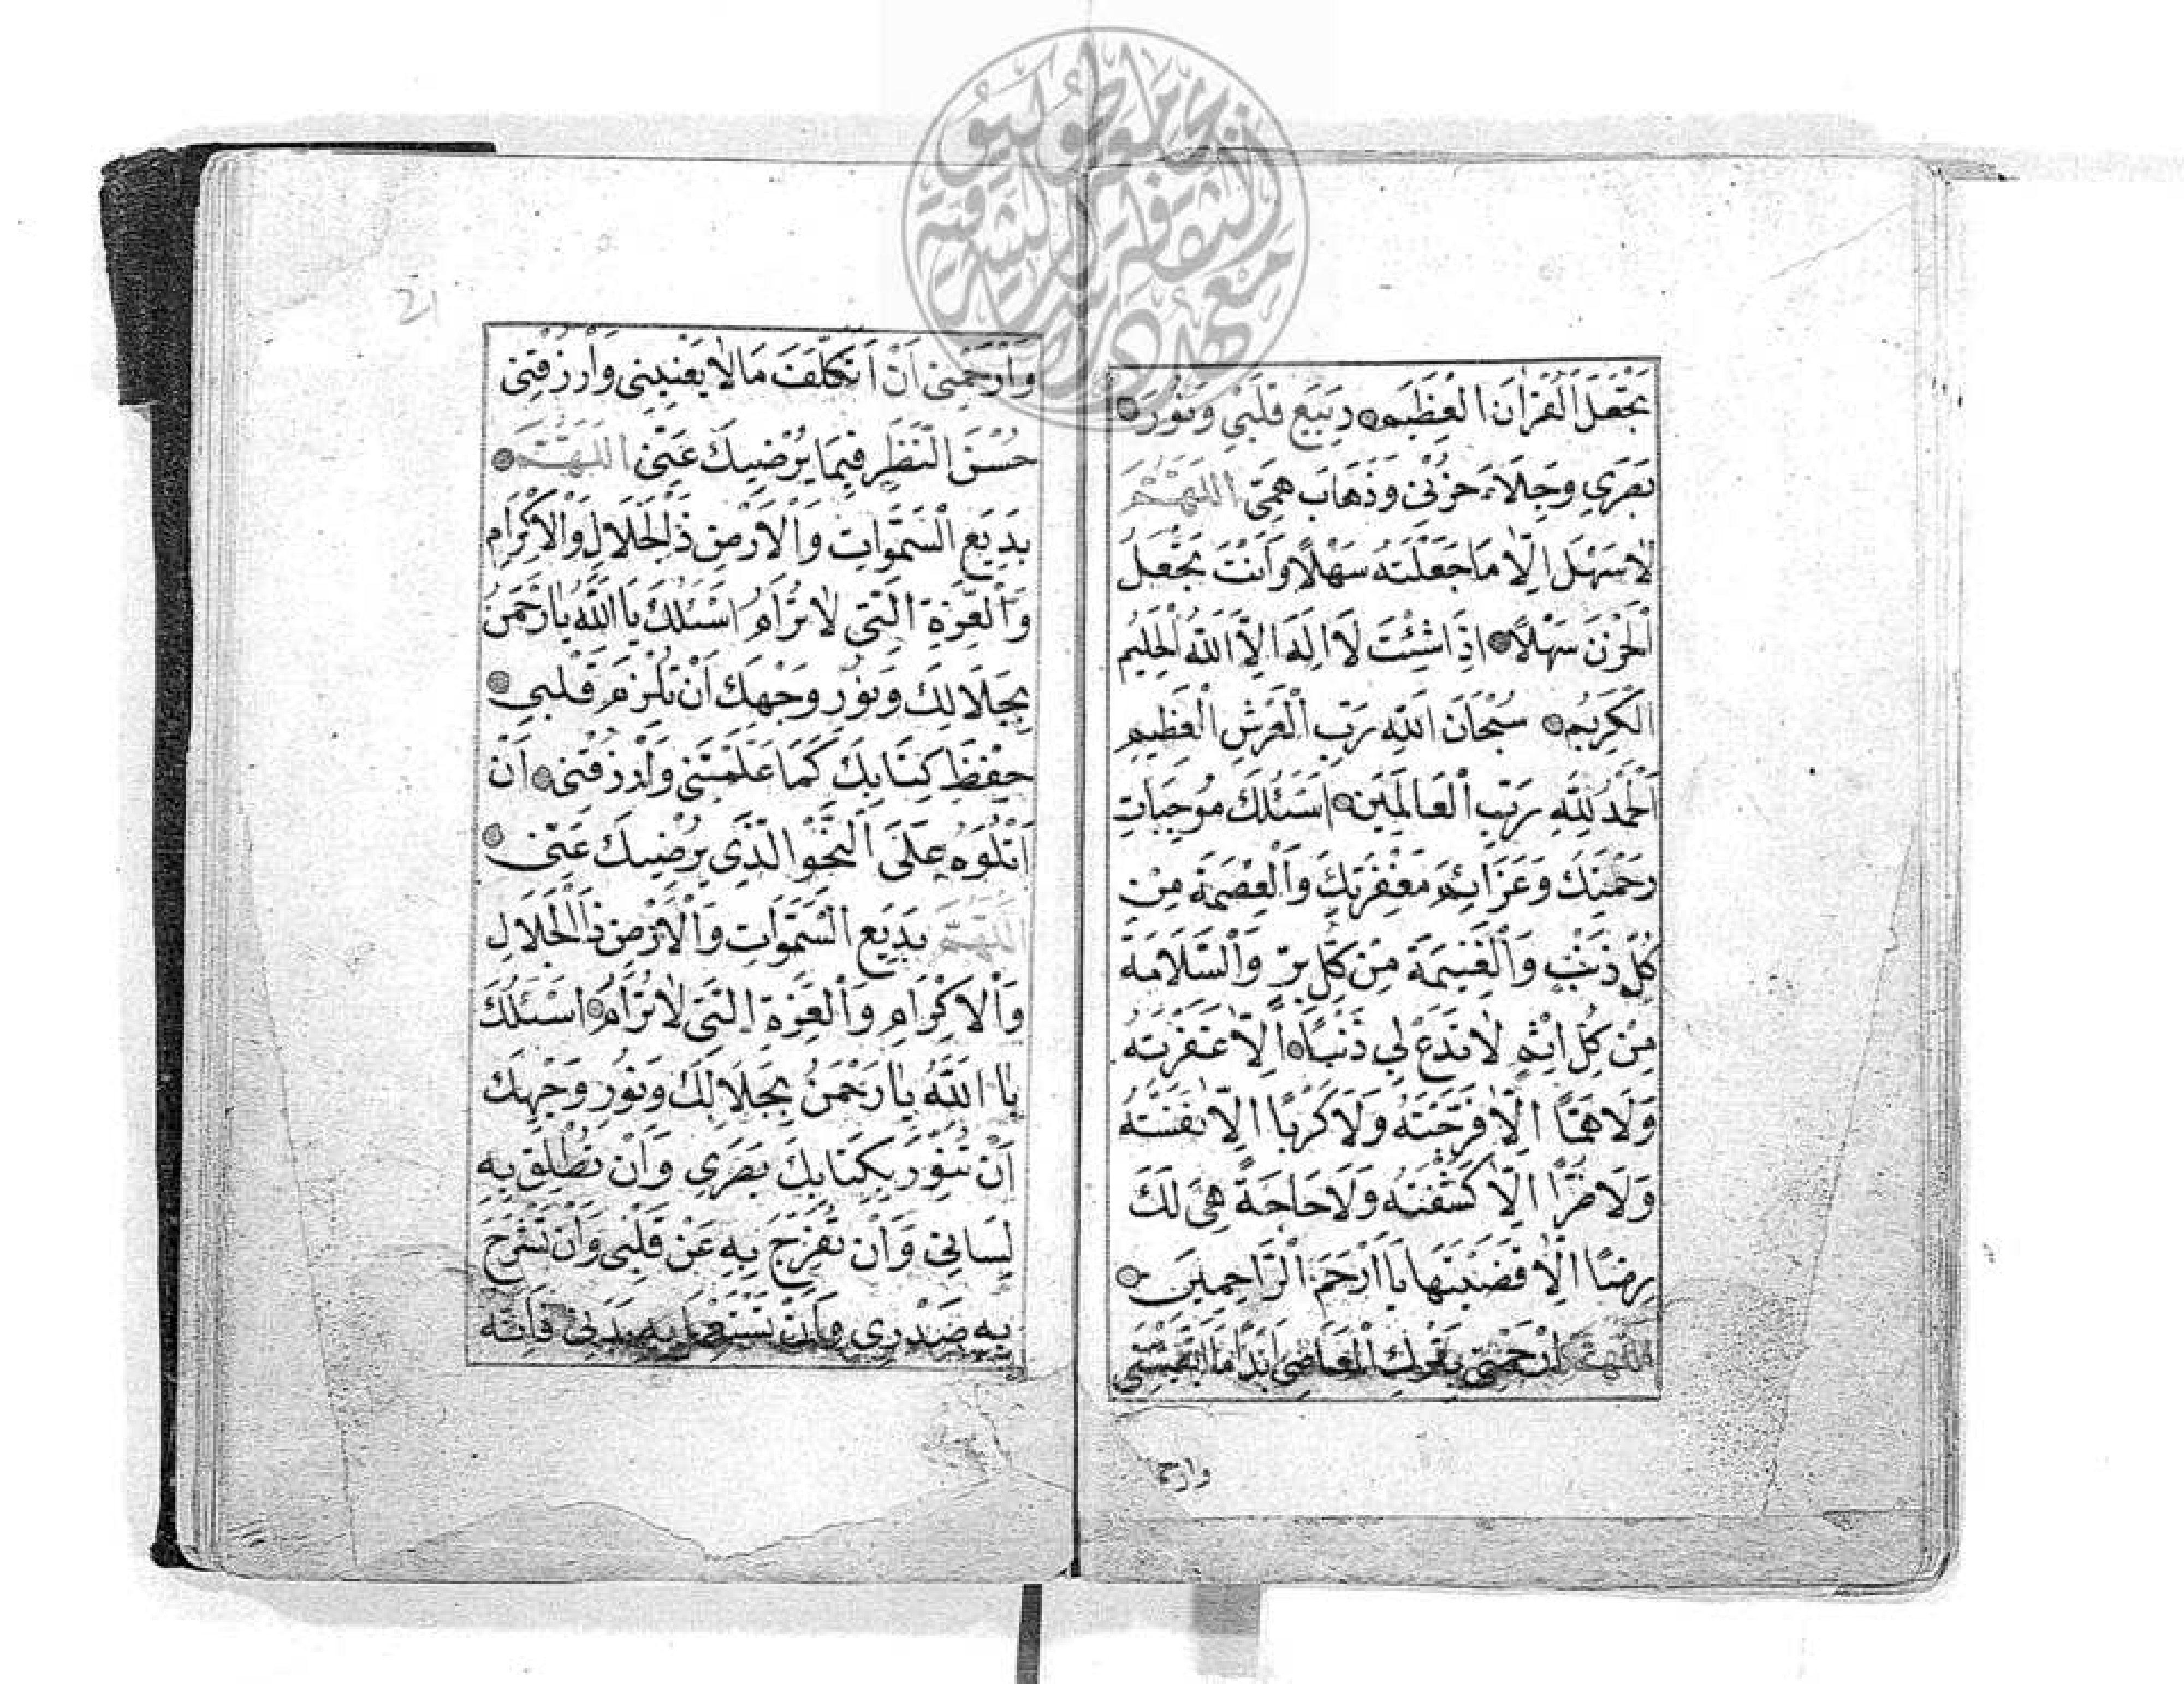 تَجْعَلَ الْقُرْاٰنَ الْعَظِيمَ رَبِيعَ قَلْبِي وَنُورَ
بَصَرِي وَجِلَاءَ حُزْنِي وَذَهَابَ هَمِّي اَللّٰهُمَّ
لَا سَهْلَ اِلَّا مَا جَعَلْتَهُ سَهْلًا وَاَنْتَ تَجْعَلُ
الْحُزْنَ سَهْلًا اِذَا شِئْتَ لَا اِلٰهَ اِلَّا اللّٰهُ الْحَلِيمُ
الْكَرِيمُ سُبْحَانَ اللّٰهِ رَبِّ الْعَرْشِ الْعَظِيمِ
اَلْحَمْدُ لِلّٰهِ رَبِّ الْعَالَمِينَ اَسْئَلُكَ مُوجِبَاتِ
رَحْمَتِكَ وَعَزَائِمَ مَغْفِرَتِكَ وَالْعِصْمَةَ مِنْ
كُلِّ ذَنْبٍ وَالْغَنِيمَةَ مِنْ كُلِّ بِرٍّ وَالسَّلَامَةَ
مِنْ كُلِّ اِثْمٍ لَا تَدَعْ لِي ذَنْبًا اِلَّا غَفَرْتَهُ
وَلَا هَمًّا اِلَّا فَرَّجْتَهُ وَلَا كَرْبًا اِلَّا نَفَّسْتَهُ
وَلَا ضُرًّا اِلَّا كَشَفْتَهُ وَلَا حَاجَةً هِيَ لَكَ
رِضًا اِلَّا قَضَيْتَهَا يَا اَرْحَمَ الرَّاحِمِينَ
اَللّٰهُمَّ ارْحَمْنِي بِتَرْكِ الْمَعَاصِي اَبَدًا مَا اَبْقَيْتَنِي
وارح
وَارْحَمْنِي اَنْ اَتَكَلَّفَ مَا لَا يَعْنِينِي وَارْزُقْنِي
حُسْنَ النَّظَرِ فِيمَا يُرْضِيكَ عَنِّي اَللّٰهُمَّ
بَدِيعَ السَّمٰوَاتِ وَالْاَرْضِ ذَا الْجَلَالِ وَالْاِكْرَامِ
وَالْعِزَّةِ الَّتِي لَا تُرَامُ اَسْئَلُكَ يَا اَللّٰهُ يَا رَحْمٰنُ
بِجَلَالِكَ وَنُورِ وَجْهِكَ اَنْ تُلْزِمَ قَلْبِي
حِفْظَ كِتَابِكَ كَمَا عَلَّمْتَنِي وَارْزُقْنِي اَنْ
اَتْلُوَهُ عَلَى النَّحْوِ الَّذِي يُرْضِيكَ عَنِّي
اَللّٰهُمَّ بَدِيعَ السَّمٰوَاتِ وَالْاَرْضِ ذَا الْجَلَالِ
وَالْاِكْرَامِ وَالْعِزَّةِ الَّتِي لَا تُرَامُ اَسْئَلُكَ
يَا اَللّٰهُ يَا رَحْمٰنُ بِجَلَالِكَ وَنُورِ وَجْهِكَ
اَنْ تُنَوِّرَ بِكِتَابِكَ بَصَرِي وَاَنْ تُطْلِقَ بِهِ
لِسَانِي وَاَنْ تُفَرِّجَ بِهِ عَنْ قَلْبِي وَاَنْ تَشْرَحَ
بِهِ صَدْرِي وَاَنْ تَسْتَعْمِلَ بِهِ بَدَنِي فَاِنَّهُ